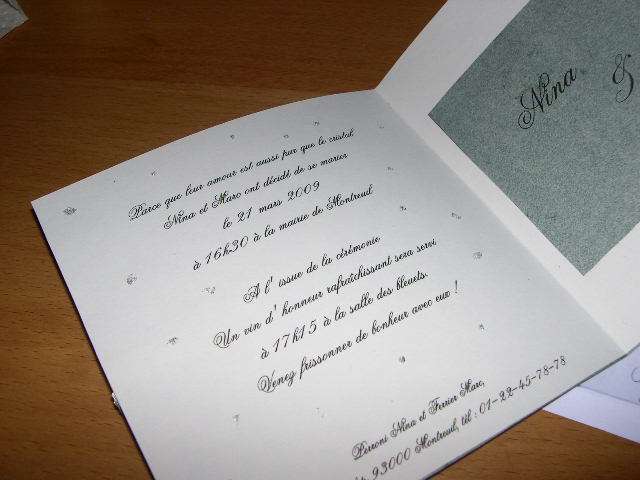 Parce que leur amour est aussi pur que le cristal
Nina et Marc ont décidé de se marier
le 21 mars 2009
à 16h30 à la mairie de Montreuil
A l' issue de la cérémonie
Un vin d' honneur rafraîchissant sera servi
à 17h15 à la salle des bleuets.
Venez frissonner de bonheur avec eux !
Nina et Ferrier Marc,
93000 Montreuil, tél : 01-22-45-78-78
Nina &